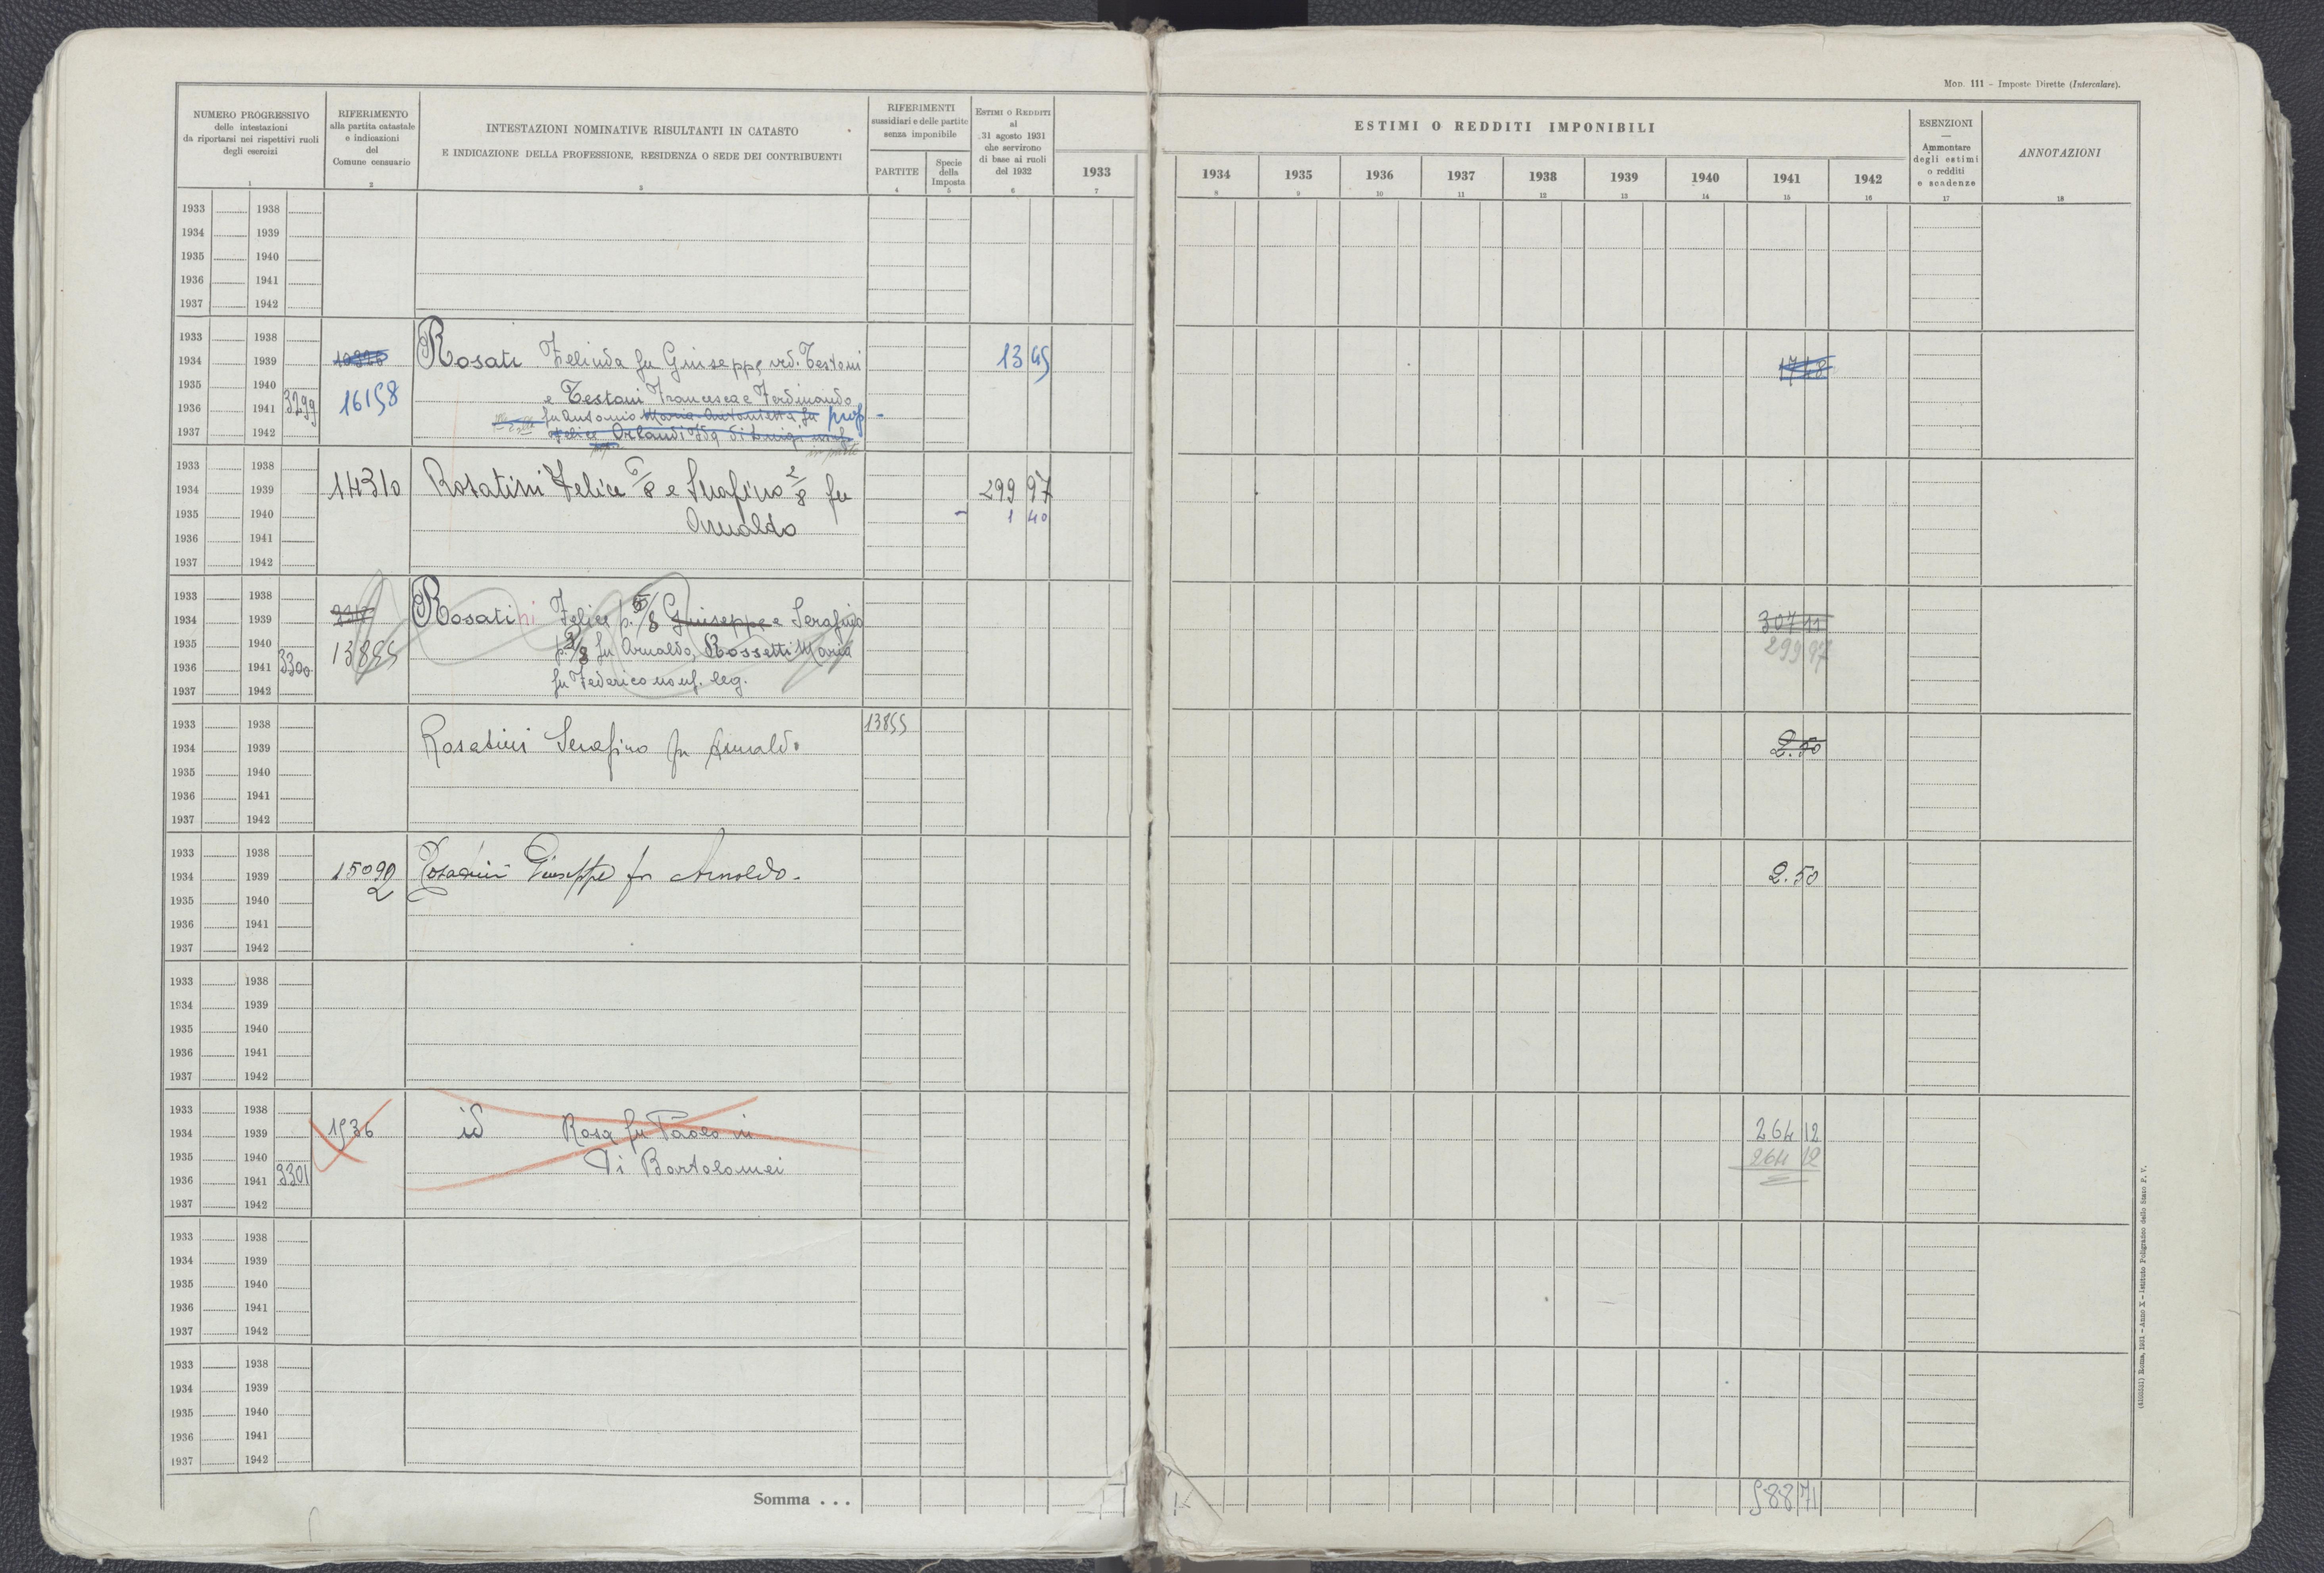 Mod. 111 - Imposte Dirette (Intercalare).
NUMERO PROGRESSIVO
delle intestazioni
da riportarsi nei rispettivi ruoli
degli esercizi
1
RIFERIMENTO
alla partita catastale
e indicazioni
del
Comune censuario
2
INTESTAZIONI NOMINATIVE RISULTANTI IN CATASTO
E INDICAZIONE DELLA PROFESSIONE, RESIDENZA O SEDE DEI CONTRIBUENTI
3
RIFERIMENTI
sussidiari e delle partite
senza imponibile
PARTITE
4
Specie
della
Imposta
5
ESTIMI O REDDITI
al
31 agosto 1931
che servirono
di base ai ruoli
del 1932
6
1933
7
ESTIMI O REDDITI IMPONIBILI
1934 1935 1936 1937 1938 1939 1940 1941 1942
8 9 10 11 12 13 14 15 16
ESENZIONI
—
Ammontare
degli estimi
o redditi
e scadenze
17
ANNOTAZIONI
18
1933 1938
1934 1939
1935 1940
1936 1941
1937 1942
1933 1938
1934 1939 Rosati Zelinda fu Giuseppe ved. Testoni 13 45 17 48
1935 1940 16158 e Testoni Francesca e Ferdinando
1936 1941 3299 fu Antonio Maria Antonietta fu prop
1937 1942 Felice Orlandi Ida di Luigi usuf
in parte
1933 1938
1934 1939 14310 Rosatini Felice 6/8 e Serafino 2/8 fu 299 97
1935 1940 Arnaldo - 1 40
1936 1941
1937 1942
1933 1938
1934 1939 Rosatini Felice p. 5/8 Giuseppe e Serafino 307 11
1935 1940 13855 p. 3/8 fu Arnaldo, Rossetti Maria 299 97
1936 1941 3300
1937 1942 fu Federico usuf. leg.
1933 1938 13855
1934 1939 Rosatini Serafino fu Arnaldo 2.50
1935 1940
1936 1941
1937 1942
1933 1938
1934 1939 15092 Rosatini Giuseppe fu Arnoldo. 2.50
1935 1940
1936 1941
1937 1942
1933 1938
1934 1939
1935 1940
1936 1941
1937 1942
1933 1938
1934 1939 1536 id Rosa fu Paolo in 264 12
1935 1940 Di Bartolomei 264 12
1936 1941 3301
1937 1942
1933 1938
1934 1939
1935 1940
1936 1941
1937 1942
1933 1938
1934 1939
1935 1940
1936 1941
1937 1942
Somma . . . 588 71
(4193531) Roma, 1931 - Anno X - Istituto Poligrafico dello Stato P. V.